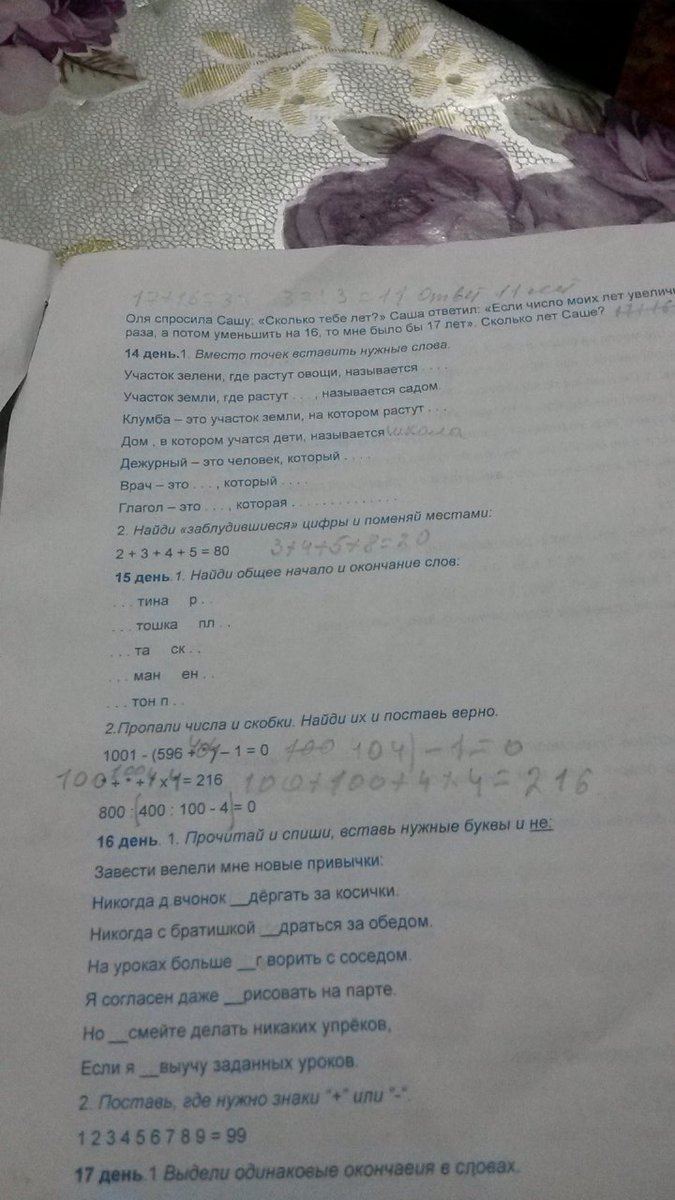 17+16=33 33:3=11 Ответ 11 лет
Оля спросила Сашу: «Сколько тебе лет?» Саша ответил: «Если число моих лет увелич
раза, а потом уменьшить на 16, то мне было бы 17 лет». Сколько лет Саше? 17+16
14 день.1. Вместо точек вставить нужные слова.
Участок зелени, где растут овощи, называется . . . .
Участок земли, где растут . . . , называется садом.
Клумба – это участок земли, на котором растут . . .
Дом , в котором учатся дети, называется школа
Дежурный – это человек, который . . . .
Врач – это . . . , который . . . .
Глагол – это . . . , которая . . . . . . . . . . . . . .
2. Найди «заблудившиеся» цифры и поменяй местами:
2 + 3 + 4 + 5 = 80 3+4+5+8=20
15 день.1. Найди общее начало и окончание слов:
. . . тина р . .
. . . тошка пл . .
. . . та ск . .
. . . ман ен . .
. . . тон п . .
2.Пропали числа и скобки. Найди их и поставь верно.
1001 - (596 + 404) – 1 = 0 104) – 1 = 0
100 + 100 + 4 x 4 = 216 100+100+4×4=216
800 : (400 : 100 - 4) = 0
16 день. 1. Прочитай и спиши, вставь нужные буквы и не:
Завести велели мне новые привычки:
Никогда д.вчонок __дёргать за косички.
Никогда с братишкой __драться за обедом.
На уроках больше __г ворить с соседом.
Я согласен даже __рисовать на парте.
Но __смейте делать никаких упрёков,
Если я __выучу заданных уроков.
2. Поставь, где нужно знаки "+" или "-".
1 2 3 4 5 6 7 8 9 = 99
17 день.1 Выдели одинаковые окончаеия в словах.